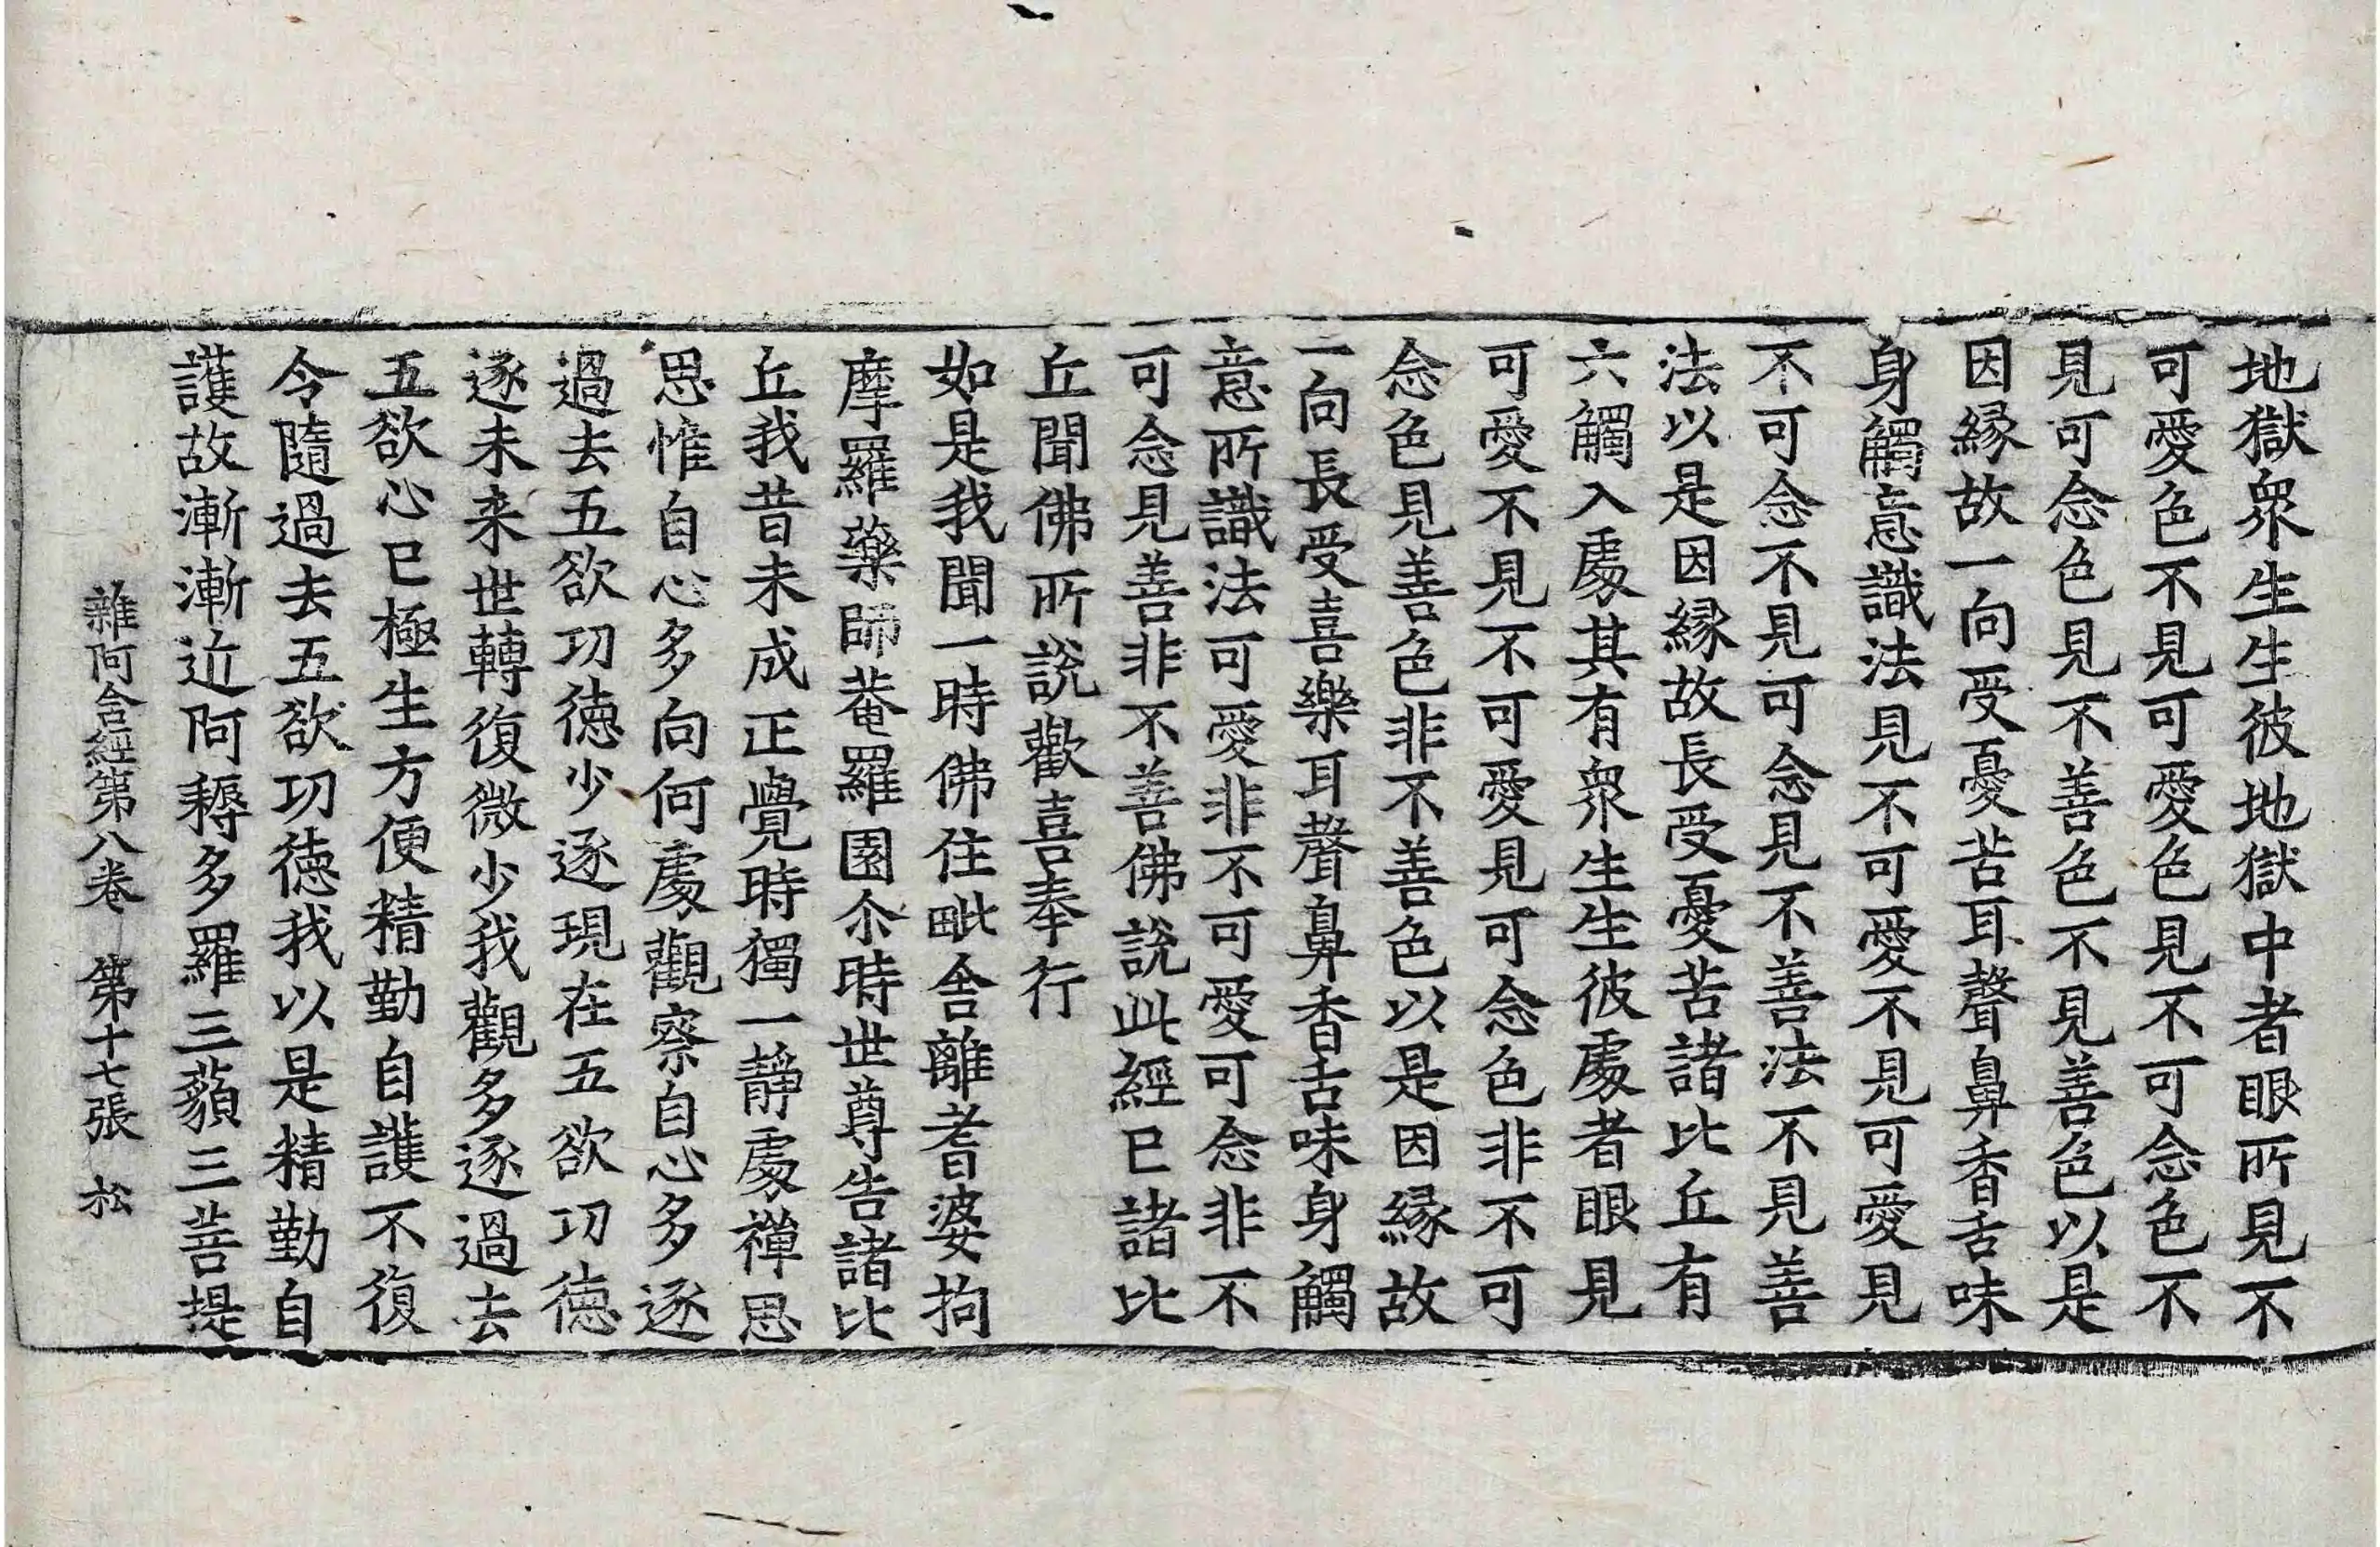 地獄衆生生彼地獄中者眼所見不
可愛色不見可愛色見不可念色不
見可念色見不善色不見善色以是
因縁故一向受憂苦耳聲鼻香舌味
身觸意識法見不可愛不見可愛見
不可念不見可念見不善法不見善
法以是因縁故長受憂苦諸比丘有
六觸入處其有衆生生彼處者眼見
可愛不見不可愛見可念色非不可
念色見善色非不善色以是因縁故
一向長受喜樂耳聲鼻香舌味身觸
意所識法可愛非不可愛可念非不
可念見善非不善佛說此經已諸比
丘聞佛所說歡喜奉行
如是我聞一時佛住毗舍離耆婆拘
摩羅藥師菴羅園尒時世尊告諸比
丘我昔未成正覺時獨一靜處禪思
思惟自心多向何處觀察自心多逐
過去五欲功徳少逐現在五欲功徳
逐未来世轉復微少我觀多逐過去
五欲心已極生方便精勤自護不復
令隨過去五欲功徳我以是精勤自
護故漸漸近阿耨多羅三藐三菩提
雜阿含經第八卷　第十七張　松